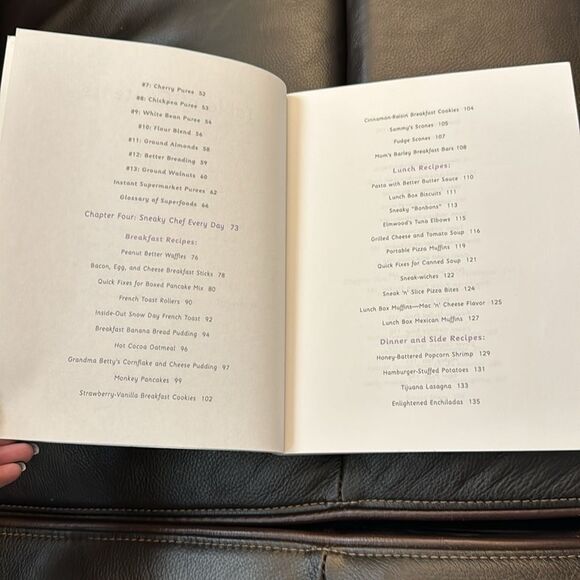 #7: Cherry Puree 52
#8: Chickpea Puree 53
#9: White Bean Puree 54
#10: Flour Blend 56
#11: Ground Almonds 58
#12: Better Breading 59
#13: Ground Walnuts 60
Instant Supermarket Purees 62
Glossary of Superfoods 66
Chapter Four: Sneaky Chef Every Day 73
Breakfast Recipes:
Peanut Better Waffles 76
Bacon, Egg, and Cheese Breakfast Sticks 78
Quick Fixes for Boxed Pancake Mix 80
French Toast Rollers 90
Inside-Out Snow Day French Toast 92
Breakfast Banana Bread Pudding 94
Hot Cocoa Oatmeal 96
Grandma Betty's Cornflake and Cheese Pudding 97
Monkey Pancakes 99
Strawberry-Vanilla Breakfast Cookies 102
Cinnamon-Raisin Breakfast Cookies 104
Sammy's Scones 105
Fudge Scones 107
Mom's Barley Breakfast Bars 108
Lunch Recipes:
Pasta with Better Butter Sauce 110
Lunch Box Biscuits 111
Sneaky "Bonbons" 113
Elmwood's Tuna Elbows 115
Grilled Cheese and Tomato Soup 116
Portable Pizza Muffins 119
Quick Fixes for Canned Soup 121
Sneak-wiches 122
Sneak 'n' Slice Pizza Bites 124
Lunch Box Muffins—Mac 'n' Cheese Flavor 125
Lunch Box Mexican Muffins 127
Dinner and Side Recipes:
Honey-Battered Popcorn Shrimp 129
Hamburger-Stuffed Potatoes 131
Tijuana Lasagna 133
Enlightened Enchiladas 135